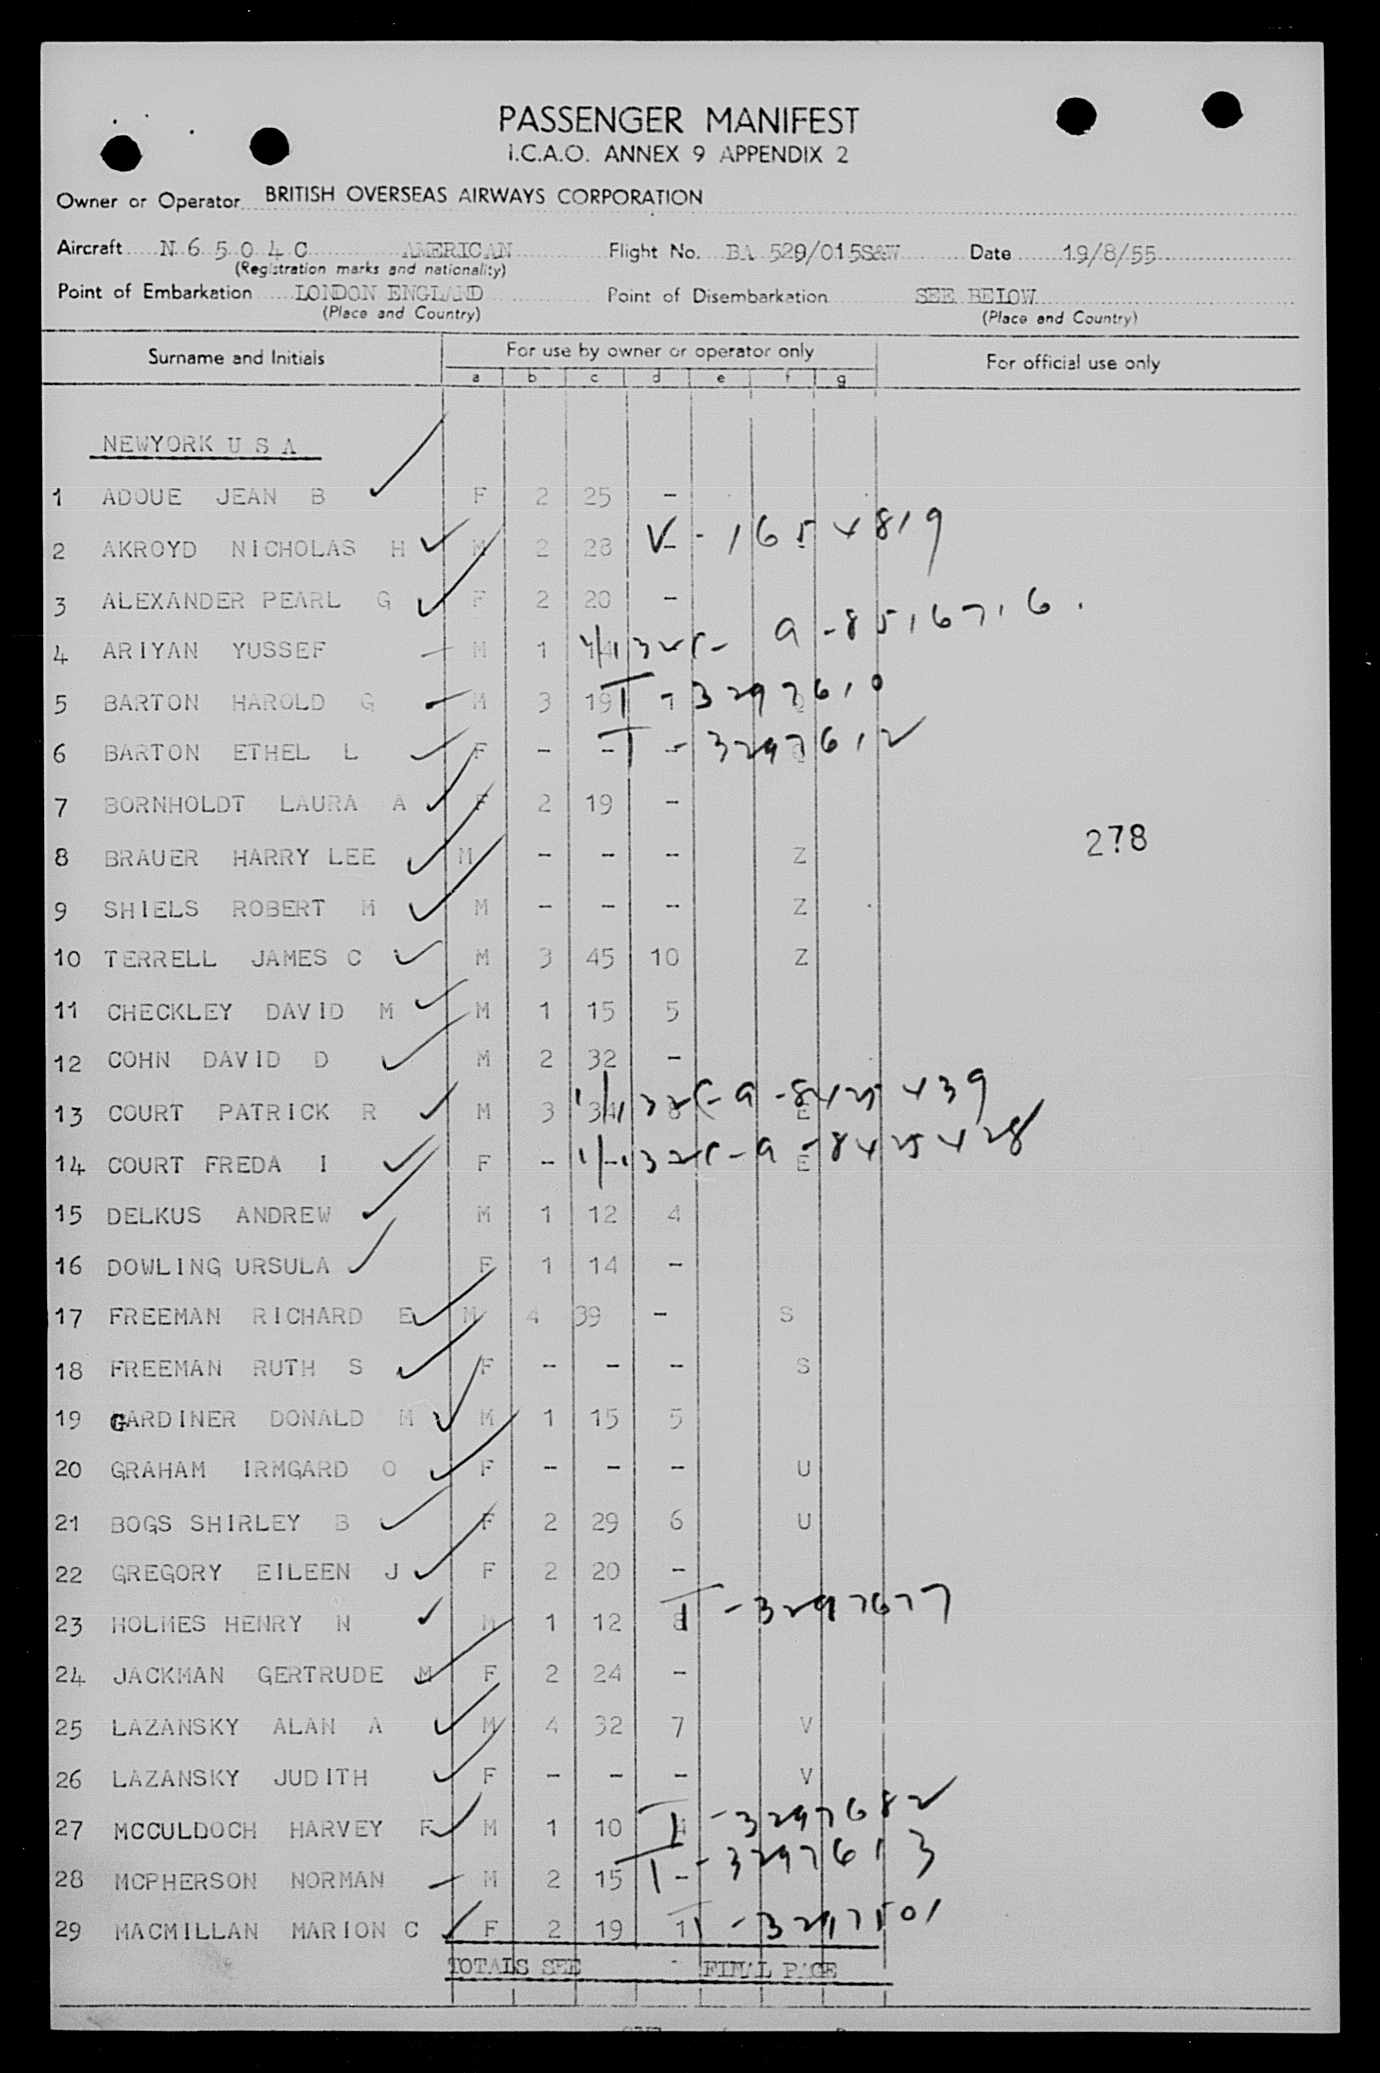 PASSENGER MANIFEST
I.C.A.O. ANNEX 9 APPENDIX 2
Owner or Operator BRITISH OVERSEAS AIRWAYS CORPORATION
Aircraft N 6 5 0 4 C AMERICAN Flight No. BA 529/015S&W Date 19/8/55
(Registration marks and nationality)
Point of Embarkation LONDON ENGLAND Point of Disembarkation SEE BELOW
(Place and Country) (Place and Country)
Surname and Initials For use by owner or operator only For official use only
a b c d e f g
NEWYORK U S A
1 ADOUE JEAN B F 2 25 -
2 AKROYD NICHOLAS H M 2 28 - V-1654819
3 ALEXANDER PEARL G F 2 20 -
4 ARIYAN YUSSEF M 1 a-8516716.
5 BARTON HAROLD G M 3 19 T-3297610
6 BARTON ETHEL L F - - - T-3297612
7 BORNHOLDT LAURA A F 2 19 -
8 BRAUER HARRY LEE M - - - Z 278
9 SHIELS ROBERT M M - - - Z
10 TERRELL JAMES C M 3 45 10 Z
11 CHECKLEY DAVID M M 1 15 5
12 COHN DAVID D M 2 32 -
13 COURT PATRICK R M 3 34 8 E a-8425439
14 COURT FREDA I F - - E a-8425428
15 DELKUS ANDREW M 1 12 4
16 DOWLING URSULA F 1 14 -
17 FREEMAN RICHARD E M 4 39 - S
18 FREEMAN RUTH S F - - - S
19 GARDINER DONALD M M 1 15 5
20 GRAHAM IRMGARD O F - - - U
21 BOGS SHIRLEY B F 2 29 6 U
22 GREGORY EILEEN J F 2 20 -
23 HOLMES HENRY N M 1 12 8 T-3297677
24 JACKMAN GERTRUDE M F 2 24 -
25 LAZANSKY ALAN A M 4 32 7 V
26 LAZANSKY JUDITH F - - - V
27 MCCULDOCH HARVEY F M 1 10 T-3297682
28 MCPHERSON NORMAN M 2 15 - T-3297613
29 MACMILLAN MARION C F 2 19 1 T-3297501
TOTALS SEE FINAL PAGE